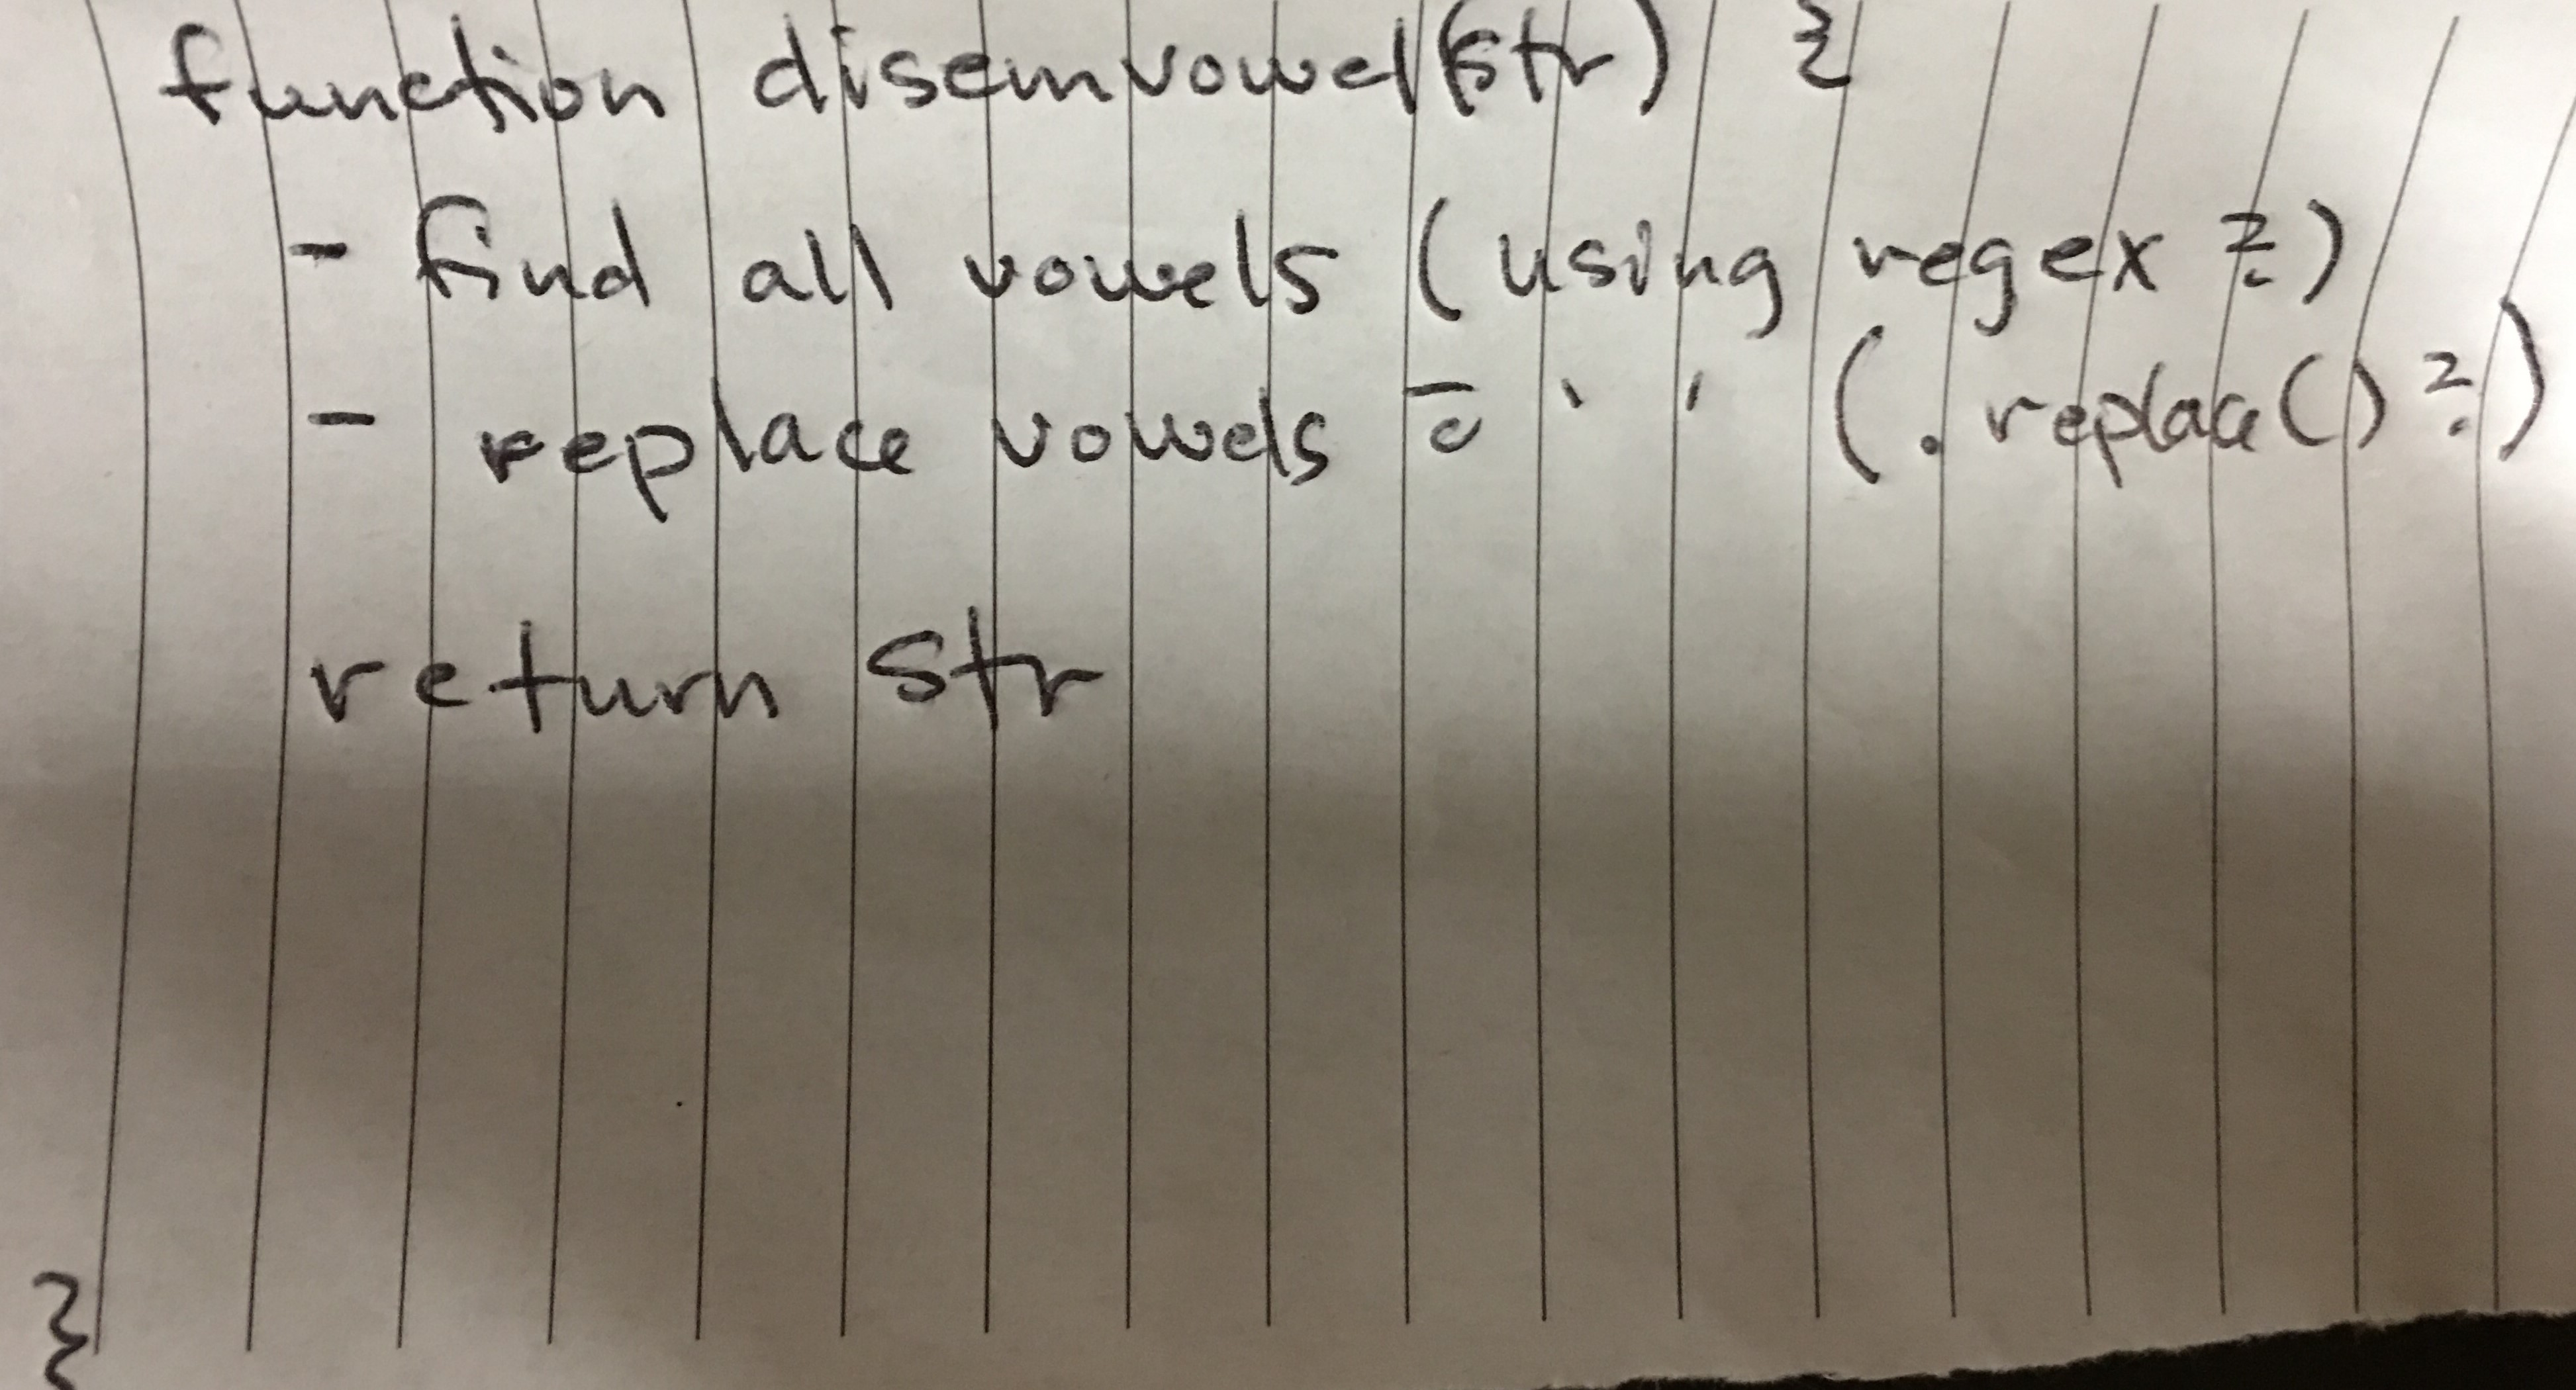 function disemvowel(str) {
- find all vowels (using regex ?)
- replace vowels c̄ ' ' (.replace() ?)
return str
}